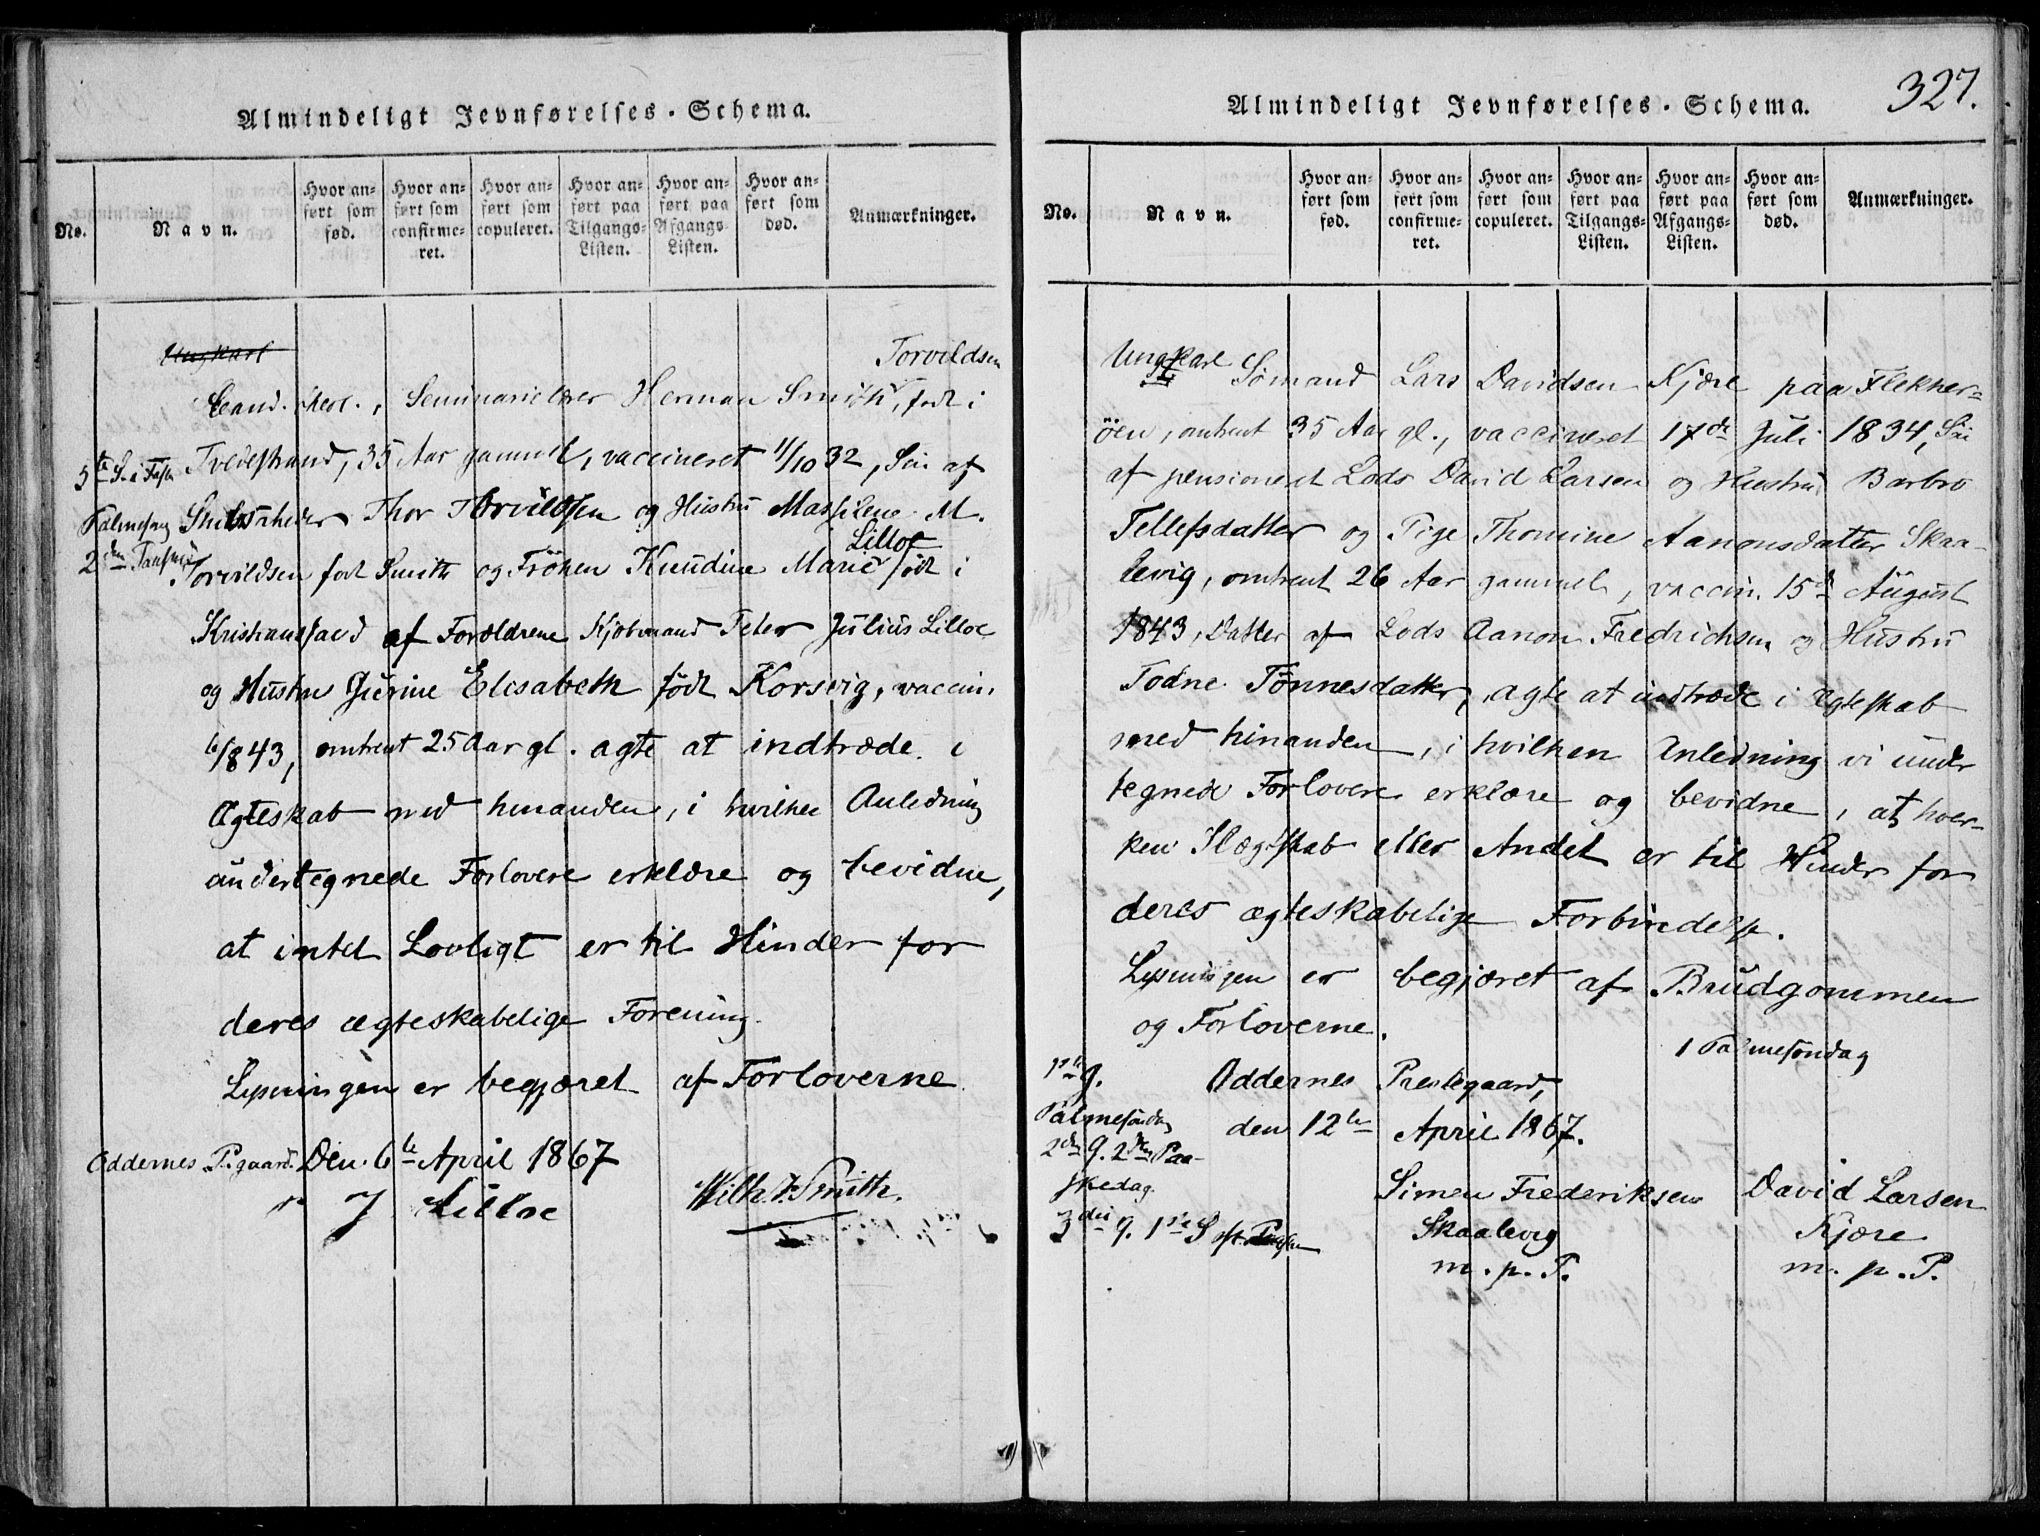 Almindeligt Jevnførelses-Schema.
No.
Navn.
Hvor an-
ført som
fød.
Hvor an-
ført som
confirme-
ret.
Hvor an-
ført som
copuleret.
Hvor an-
ført paa
Tilgangs-
Listen.
Hvor an-
ført paa
Afgangs-
Listen.
Hvor an-
ført som
død.
Anmærkninger.
Ungkarl
Torvildsen
Cand. theol., Seminarielærer Herman Smith, født i
Tvedestrand, 35 Aar gammel, vaccineret 11/10 32, Søn af
Thor Torvildsen og Hustru M.
Lilloe
Torvildsen født Smith og Frøken Knudine Marie født i
Kristianssand af Forældrene Kjøbmand Peter Julius Lilloe
og Hustru Gurine Elisabeth født Korsvig, vaccin.
6/843, omtrent 25 Aar gl. agte at indtræde i
Ægteskab med hinanden, i hvilken Anledning
undertegnede Forlovere erklære og bevidne,
at intet Lovligt er til Hinder for
deres ægteskabelige Forening.
Lysningen er begjæret af Forloverne
Oddernes P.gaard. Den 6te April 1867
J Lilloe Wilh. Smith.
5te S. i Faste
Palmesøndag
2den
327.
Almindeligt Jevnførelses-Schema.
No.
Navn.
Hvor an-
ført som
fød.
Hvor an-
ført som
confirme-
ret.
Hvor an-
ført som
copuleret.
Hvor an-
ført paa
Tilgangs-
Listen.
Hvor an-
ført paa
Afgangs-
Listen.
Hvor an-
ført som
død.
Anmærkninger.
Ungkarl Sømand Lars Davidsen Kjære paa Flekker-
øen, omtrent 35 Aar gl., vaccineret 17de Juli 1834, Søn
af pensioneret Lods David Larsen og Hustru Barbro
Tellefsdatter og Pige Thomine Aanonsdatter Skaa-
levig, omtrent 26 Aar gammel, vaccin. 15de August
1843, Datter af Lods Aanon Fredrichsen og Hustru
Todne Tønnesdatter, agte at indtræde i Ægteskab
med hinanden, i hvilken Anledning vi under
tegnede Forlovere erklære og bevidne, at hver-
ken Slægtskab eller Andet er til Hinder for
deres ægteskabelige Forbindelse.
Lysningen er begjæret af Brudgommen
og Forloverne.
1 Palmesøndag
1ste g. Oddernes Prestegaard,
Palmesøndag den 12te April 1867.
2den g. 2den Paa-
skedag.
3die g. 1ste S. eft. Paaske
Simen Frederiksen David Larsen
Skaalevig Kjære
m. p. P. m. p. P.